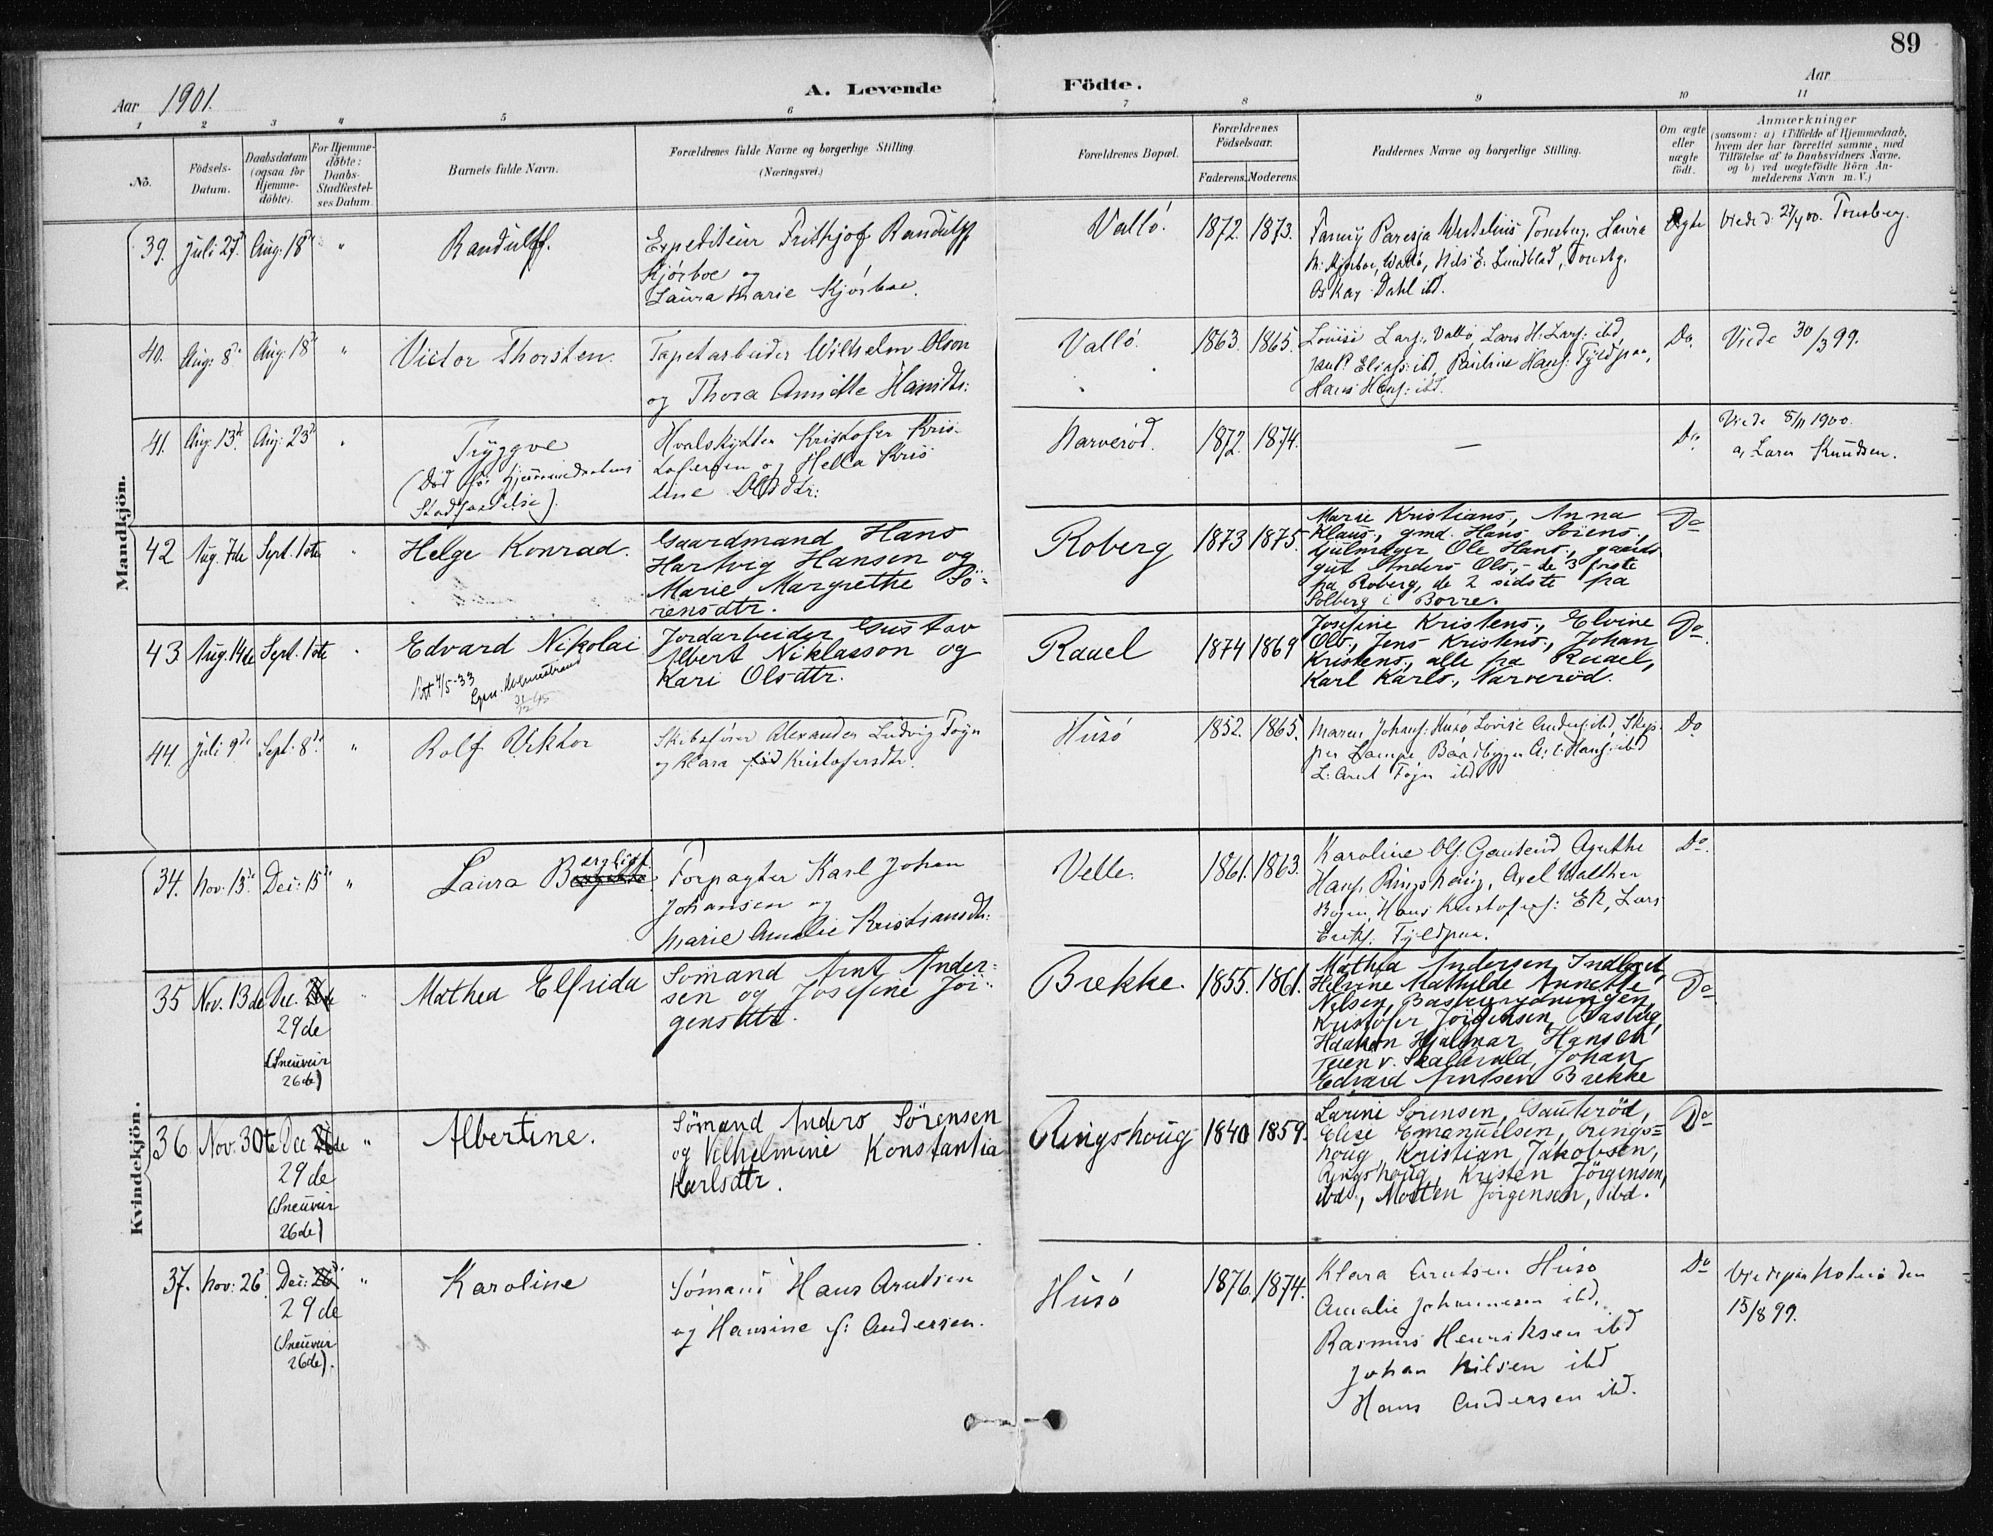 89
Aar 1901. A. Levende Födte. Aar
1 2 3 4 5 6 7 8 9 10 11
No. Födsels-Datum. Daabsdatum (ogsaa for Hjemme-döbte). For Hjemme-döbte: Daabs-Stadfæstel-ses Datum Barnets fulde Navn. Forældrenes fulde Navne og borgerlige Stilling. (Næringsvei.) Forældrenes Bopæl. Forældrenes Födselsaar. Faderens. Moderens. Faddernes Navne og borgerlige Stilling. Om ægte eller uægte födt. Anmærkninger (saasom: a) i Tilfælde af Hjemmedaab, hvem der har forrettet samme, med Tilföielse af to Daabsvidners Navne, og b) ved uægtefödte Börn An-melderens Navn m. V.)
Mandkjön.
39. Juli 27de Aug: 18de " Randulff. Expediteur Frithjof Randulff
Kjörboe og
Laura Marie Kjörboe.
Vallö. 1872. 1873. Fanny Tonsberg, Laura
M. Kjörboe, Vallö, Nils E. Lundblad, Tonsbg.
Oskar Dahl ibd.
Ægte Viede d. 27/4 00. Tonsberg.
40. Aug: 8de Aug: 18de " Victor Thorsten. Tapetarbeider Wilhelm Olson
og Thora Annette Hansdtr:
Vallö. 1863. 1865. Louise Larss:, Vallö, Lars H. Larss: ibd,
Eliass: ibd, Pauline Hans: Fyldpaa,
Hans Hans: ibd.
Do. Viede 30/3 99.
41. Aug: 13de Aug: 23de " Tryggve
(Död för Hjemmedaabens
Stadfæstelse).
Hvalskytter Kristofer Kris-
tofersen og Hella Kris
tine Olsdtr:
Narveröd. 1872. 1874. — Do. Viede 5/11 1900.
a, Lars Knudsen.
42 Aug. 7de Sept. 1ste " Helge Konrad. Gaardmand Hans
Hartvig Hansen og
Marie Margrethe Sö-
rensdtr.
Roberg 1873 1875. Marie Kristians., Anna
Klaus., gmd. Hans Sörens.,
hjulmager Ole Hans., gaards
gut Anders Ols., - de 3 förste
paa Roberg, de 2 sidste paa
Solberg i Borre.
Do
43 Aug. 14de Sept. 1ste " Edvard Nikolai
4/5-33
Jordarbeider Gustav
Albert Niklasson og
Kari Olsdtr.
Raael 1874 1869 Josefine Kristens., Elvine
Ols., Jens Kristens., Johan
Kristens., alle paa Raael,
Karl Karls., Narveröd.
Do.
44. Juli 9de Sept: 8de " Rolf Viktor Skibsförer Alexander Ludvig Föyn
og Klara född Kristofersdtr.
Husö 1852. 1865. Maren Johans: Husö, Lovise Anders: ibd, Skip-
per Lampe, Baadbygger A: Hans: ibd
L: Arnt Föyn ibd
Do
Kvindekjön.
34. Nov: 13de Dec: 15de " Laura Bergliot Forpagter Karl Johan
Johansen og
Marie Amalie Kristiansdtr:
Velle. 1861. 1863. Karoline Ols: Gauteröd Agathe
Hans: Ringshoug, Axel Walther
Bogen, Hans Kristofers: Ek, Lars
Eriks: Fyldpaa.
Do.
35 Nov. 13de Dec.
29de
(Sneuveir
26de)
" Mathea Elfrida Sömand Arnt Ander-
sen og Josefine Jör-
gensdtr.
Brekke. 1855. 1861. Mathea Andersen Indlaget,
Helvine Mathilde Annette
Nilsen, Basbergrydningen,
Kristofer Jörgensen, Basberg,
Haakon Hjalmar Hansen
Teien v. Skallevold, Johan
Edvard Arntsen Brekke
Do.
36 Nov. 30te Dec
29de
(Sneuveir
26de)
" Albertine. Sömand Anders Sörensen
og Vilhelmine Konstantia
Karlsdtr.
Ringshoug 1840 1859. Larine Sörensen, Gauteröd,
Elise Emanuelsen, Rings=
houg, Kristian Jakobsen,
Ringshoug, Kristen Jörgensen,
ibd., Morten Jörgensen, ibd.
Do
37. Nov: 26de Dec: 26de
29de
(Sneuveir
26de).
" Karoline Sömand Hans Arntsen
og Hansine f: Andersen.
Husö 1876. 1874. Klara Arntsen Husö
Amalie Johannesen ibd.
Rasmus Henriksen ibd
Johan Nilsen ibd
Hans Andersen ibd.
Do Viede paa Nöterö den
15/8 99.